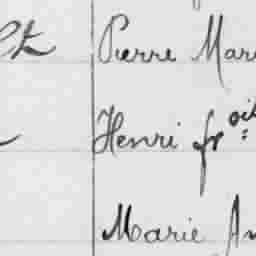 Pierre Mari
Henri frois:
Marie An